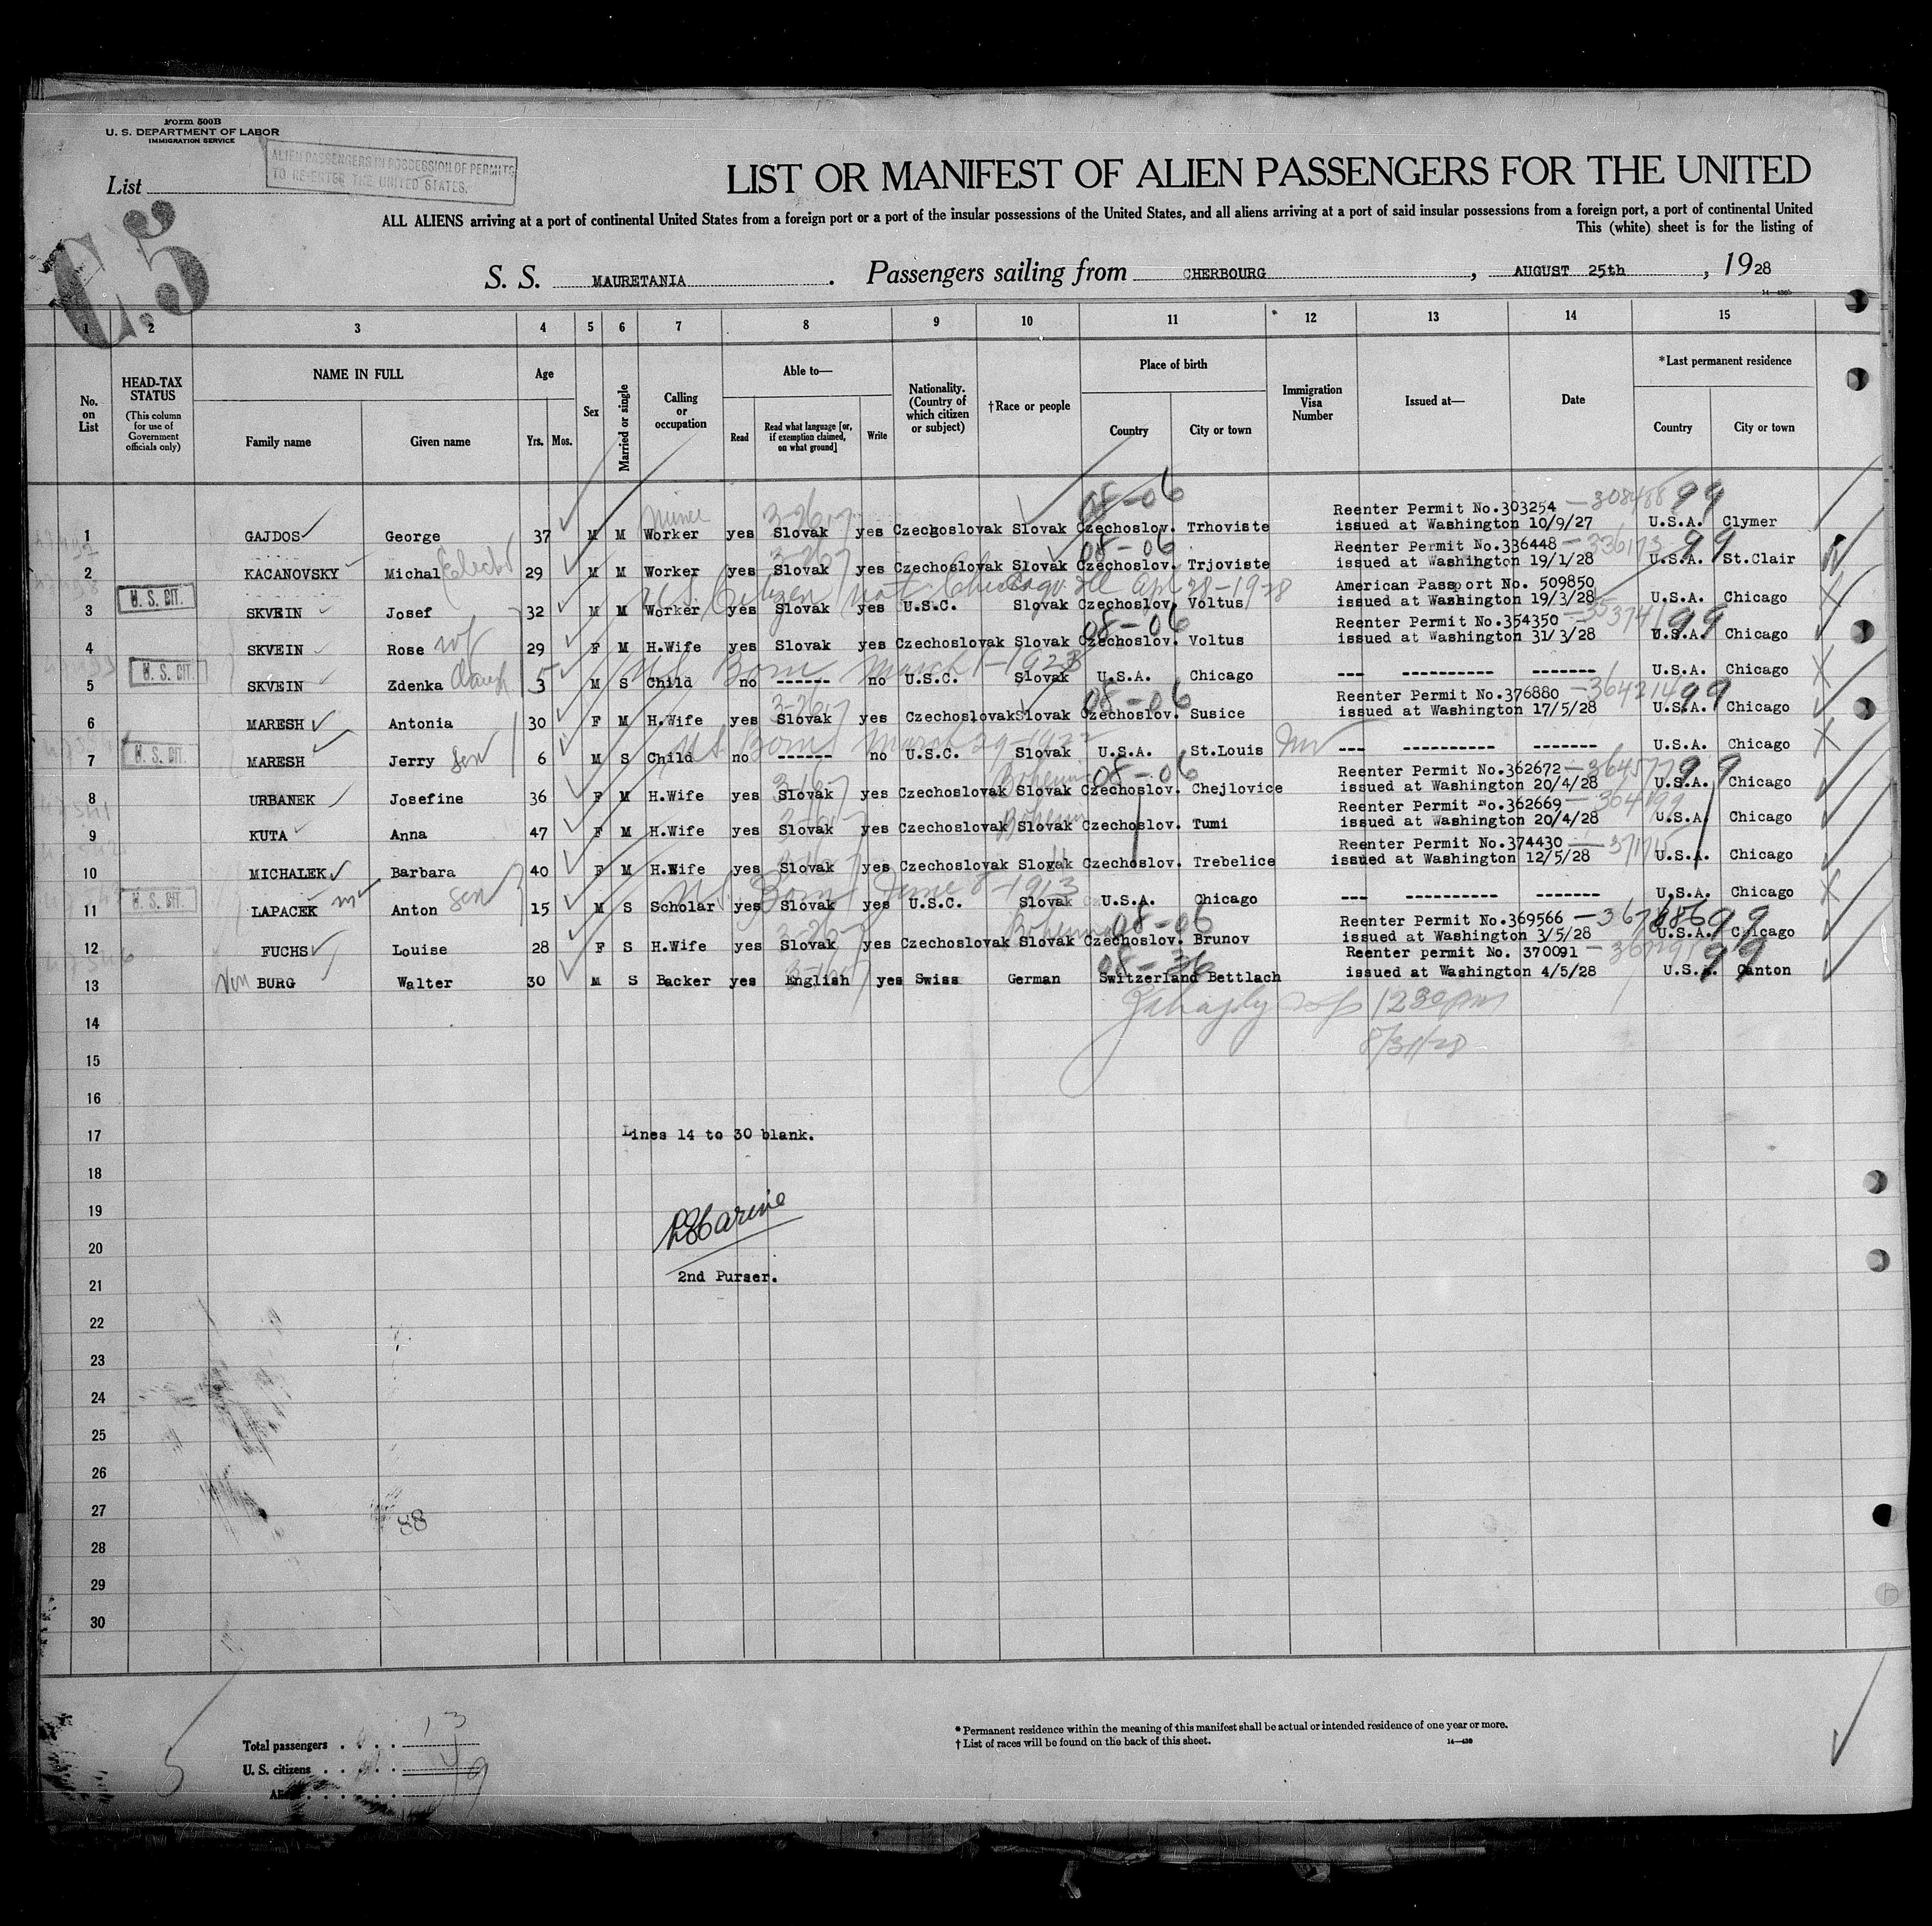 Form 500B
U. S. DEPARTMENT OF LABOR
IMMIGRATION SERVICE
ALIEN PASSENGERS IN POSSESSION OF PERMITS
TO RE-ENTER THE UNITED STATES.
List
C.5
LIST OR MANIFEST OF ALIEN PASSENGERS FOR THE UNITED
ALL ALIENS arriving at a port of continental United States from a foreign port or a port of the insular possessions of the United States, and all aliens arriving at a port of said insular possessions from a foreign port, a port of continental United
This (white) sheet is for the listing of
S. S. MAURETANIA. Passengers sailing from CHERBOURG, AUGUST 25th, 1928
1 2 3 4 5 6 7 8 9 10 11 12 13 14 15
No. on List
HEAD-TAX STATUS
(This column for use of Government officials only)
NAME IN FULL
Family name Given name
Age
Yrs. Mos.
Sex
Married or single
Calling or occupation
Able to—
Read Read what language [or, if exemption claimed, on what ground] Write
Nationality. (Country of which citizen or subject)
†Race or people
Place of birth
Country City or town
Immigration Visa Number
Issued at—
Date
*Last permanent residence
Country City or town
08-06
Reenter Permit No.303254 —308488 99
1 GAJDOS George 37 M M Worker yes Slovak yes Czechoslovak Slovak Czechoslov. Trhoviste issued at Washington 10/9/27 U.S.A. Clymer
08-06
Reenter Permit No.336448 —336173 99
2 KACANOVSKY Michal 29 M M Worker yes Slovak yes Czechoslovak Slovak Czechoslov. Trjoviste issued at Washington 19/1/28 U.S.A. St.Clair
U.S. Citizen nat Chicago Ill Apr 28-1928
American Passport No. 509850
U. S. CIT.
3 SKVEIN Josef 32 M M Worker yes Slovak yes U.S.C. Slovak Czechoslov. Voltus issued at Washington 19/3/28 U.S.A. Chicago
08-06
Reenter Permit No.354350 —353741 99
4 SKVEIN Rose wf 29 F M H.Wife yes Slovak yes Czechoslovak Slovak Czechoslov. Voltus issued at Washington 31/3/28 U.S.A. Chicago
U.S. Born March 1-1923
U. S. CIT.
5 SKVEIN Zdenka 3 M S Child no ------ no U.S.C. Slovak U.S.A. Chicago --- ---------- ------- U.S.A. Chicago
08-06
Reenter Permit No.376880 —364214 99
6 MARESH Antonia 30 F M H.Wife yes Slovak yes Czechoslovak Slovak Czechoslov. Susice issued at Washington 17/5/28 U.S.A. Chicago
U.S. Born March 29-1922
U. S. CIT.
7 MARESH Jerry son 6 M S Child no ------ no U.S.C. Slovak U.S.A. St.Louis --- ---------- ------- U.S.A. Chicago
08-06
Reenter Permit No.362672 —364577 99
8 URBANEK Josefine 36 F M H.Wife yes Slovak yes Czechoslovak Slovak Czechoslov. Chejlovice issued at Washington 20/4/28 U.S.A. Chicago
Reenter Permit No.362669
9 KUTA Anna 47 F M H.Wife yes Slovak yes Czechoslovak Slovak Czechoslov. Tumi issued at Washington 20/4/28 U.S.A. Chicago
Reenter Permit No.374430
10 MICHALEK Barbara 40 F M H.Wife yes Slovak yes Czechoslovak Slovak Czechoslov. Trebelice issued at Washington 12/5/28 U.S.A. Chicago
U.S. Born June 8-1913
U. S. CIT.
11 LAPACEK Anton son 15 M S Scholar yes Slovak yes U.S.C. Slovak U.S.A. Chicago --- ---------- ------- U.S.A. Chicago
08-06
Reenter Permit No.369566
12 FUCHS Louise 28 F S H.Wife yes Slovak yes Czechoslovak Slovak Czechoslov. Brunov issued at Washington 3/5/28 U.S.A. Chicago
08-36
Reenter permit No. 370091
13 BURG Walter 30 M S Backer yes English yes Swiss German Switzerland Bettlach issued at Washington 4/5/28 U.S.A. Canton
1230pm
14
8/31/28
15
16
17 Lines 14 to 30 blank.
18
19
20
21 2nd Purser.
22
23
24
25
26
27
28
29
30
Total passengers 13
U. S. citizens 4
Aliens 9
* Permanent residence within the meaning of this manifest shall be actual or intended residence of one year or more.
† List of races will be found on the back of this sheet.